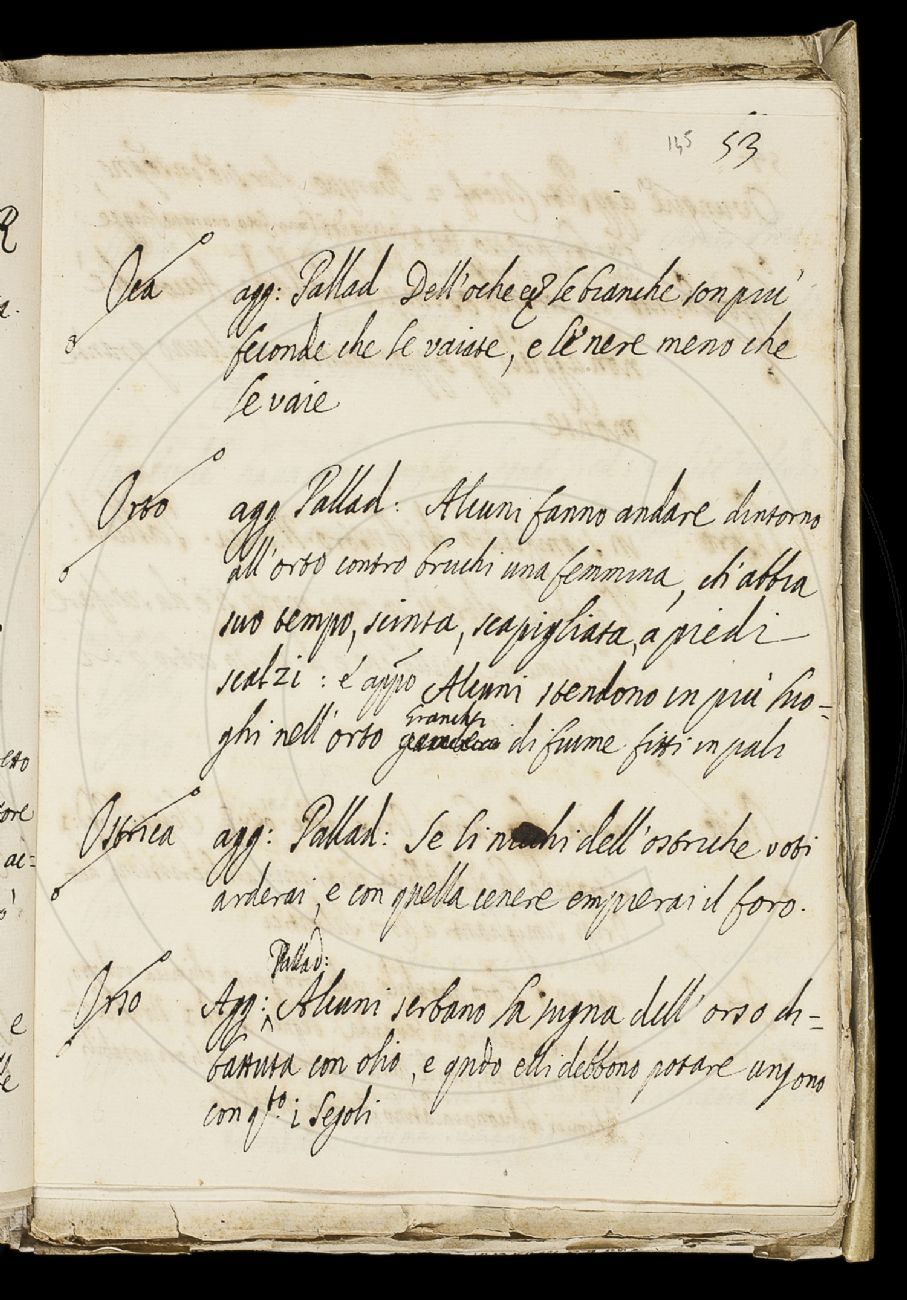 145 53
Oca agg: Pallad Dell'oche le bianche son piu'
feconde che le vaiate, e le nere meno che
le vaie
Orto agg Pallad: Alcuni fanno andare dintorno
all'orto contro bruchi una femmina, ch'abbia
suo tempo, scinta, scapigliata, a piedi
scalzi: e' app̃o Alcuni stendono in piu' luo=
granchi
ghi nell'orto di fiume fitti in pali
Ostrica agg: Pallad: Se li nicchi dell'ostriche voti
arderai, e con quella cenere empierai il foro.
Pallad:
Orso Agg: Alcuni serbano la sugna dell'orso di=
battuta con olio, e qñdo elli debbono potare ungono
con q.to i segoli